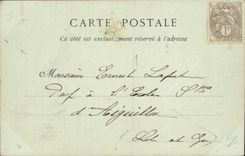 CARTE POSTALE
Ce côté est exclusivement réservé à l'adresse
Monsieur Ernest
Prof à l'École
d'Aiguillon
(Lot et Gar)